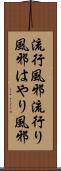 流行風邪流行り
風邪はやり風邪